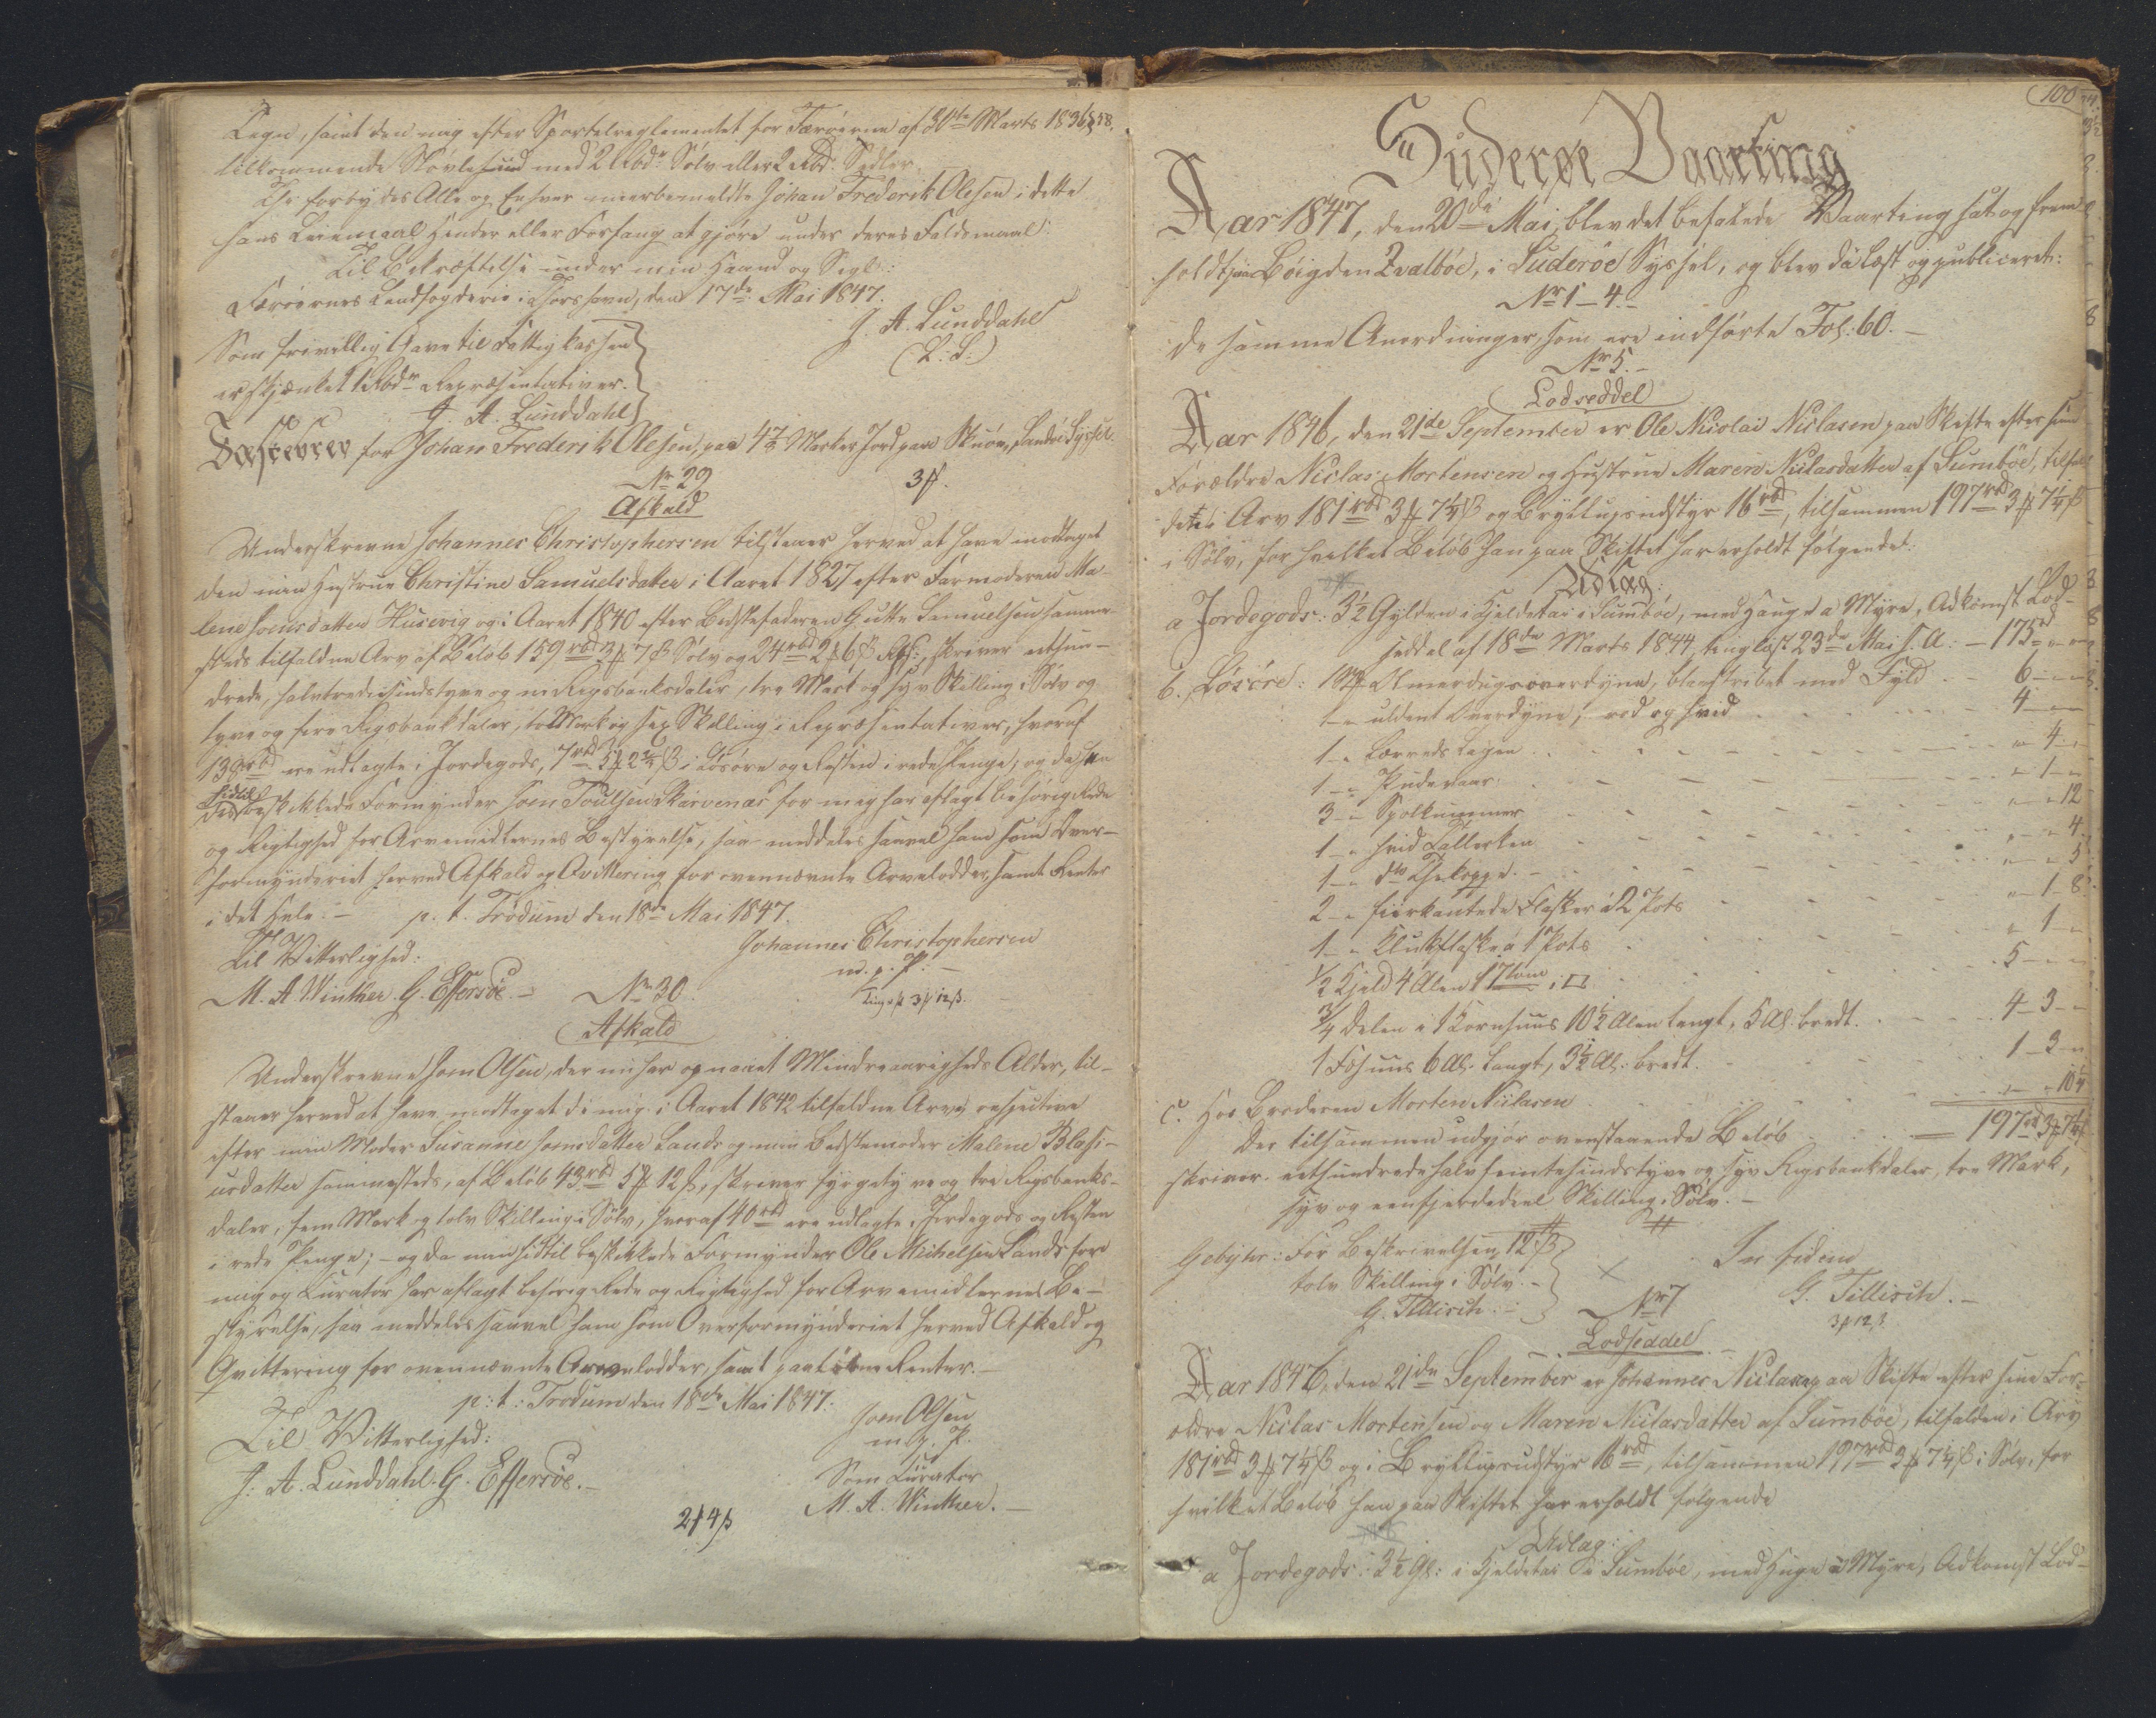 Logn, samt den mig efter Sportelreglementet for Færøerne af 30te Marts 1836 § 58.
tilkommende Støvlehuud med 2 Rbdr Sølv eller 2 Rbd. Sedler.
Thi forbydes Alle og Enhver meerbemeldte Johan Frederik Olesen i dette
hans Leiemaal Hinder eller Forfang at gjøre under deres Faldsmaal.
Til Bekræftelse under min Haand og Segl.
Færøernes Landfogderie i Thorshavn, den 17de Mai 1847.
J. A. Lunddahl
(L. S.)
Som frivillig Gave til Fattigkassen
er skjænket 1 Rbdr Repræsentativer.
J. A. Lunddahl
Fæstebrev for Johan Frederik Olesen, paa Marker Jord paa Skuøen, Sandø Syssel.
No 29 3 ß.
Afkald
Underskrevne Johannes Christophersen tilstaaer herved at have modtaget
den min Hustrue Christine Samuelsdatter i Aaret 1827 efter Farmoderen Ma-
lene Joensdatter Husevig og i Aaret 1840 efter Bedstefaderen Gutte Samuelsen samme-
steds tilfaldne Arv af Beløb 159 rbd 3 ₰ 7 ß Sølv og 24 rbd 2 ₰ 6 ß Rep: skriver eethun-
drede, halvtrediesindstyve og ni Rigsbankdaler, tre Mark og syv Skilling i Sølv og
tyve og fire Rigsbankdaler, to Mark og sex Skilling i Repræsentativer, hvoraf
138 rbd ere udlagte i Jordegods, 7 rbd 5 ₰ 2¾ ß i Løsøre og Resten i rede Penge, og da han
hidtil
beskikkede Formynder Joen Poulsen Skarvenæs for mig har aflagt behørig Rede
og Rigtighed for Arvemidlernes Bestyrelse, saa meddeles saavel ham som Over-
formynderiet herved Afkald og Qvittering for ovennævnte Arvelodder, samt Renter
i det Hele. – p. t. Trødum den 18de Mai 1847.
Til Vitterlighed: Johannes Christophersen
m. p. P. –
M. A. Winther G. Effersøe. – No 30. 3 ₰ 12 ß.
Afkald
Underskrevne Joen Olsen, der nu har opnaaet Mindreaarigheds Alder, til-
staaer herved at have modtaget de mig i Aaret 1842 tilfaldne Arv respective
efter min Moder Susanne Joensdatter Lands og min Bedstemoder Malene Blasi-
usdatter sammesteds, af Beløb 43 rbd 5 ₰ 12 ß, skriver fyrgetyve og tre Rigsbank-
daler, fem Mark og tolv Skilling i Sølv, hvoraf 40 rbd ere udlagte i Jordegods og Resten
i rede Penge; – og da min hidtil beskikkede Formynder Ole Michelsen Lands for
mig og Curator har aflagt behørig Rede og Rigtighed for Arvemidlernes Be-
styrelse, saa meddeles saavel ham som Overformynderiet herved Afkald og
Qvittering for ovennævnte Arvelodder, samt paaløbne Renter. –
p: t: Trødum den 18de Mai 1847.
Til Vitterlighed: Joen Olsen
m. p. P.
J. A. Lunddahl. G. Effersøe. – Som Curator
M. A. Winther. –
2 ₰ 4 ß
100
Suderøe Vaarting
Aar 1847, den 20de Mai, blev det befalede Vaarting sat og frem-
holdt paa Bøigden Qvalbøe, i Suderøe Syssel, og blev da læst og publiceret:
No 1–4. –
de samme Anordninger, som ere indførte Fol: 60. –
No 5. –
Lodseddel
Aar 1846, den 21de September er Ole Nicolai Niclasen paa Skifte efter sine
Forældre Niclas Mortensen og Hustrue Maren Niclasdatter af Sumbøe, tilfal-
det i Arv 181 rbd 3 ₰ 7¼ ß og Bryllupsudstyr 16 rbd, tilsammen 197 rbd 3 ₰ 7¼ ß
i Sølv, for hvilket Beløb han paa Skiftet har erholdt følgende:
Udlæg:
a Jordegods: 3½ Gylden i Hjeldetai i Sumbøe, med Hauge a Myre, Adkomst Lod-
seddel af 18de Marts 1844 tinglæst 23de Mai s. A: – 175 rd " "
b. Løsøre: 1 Olmerdugsoverdyne, blaastribet med Fyld – 6 – " –
1 – " uldent Overdyne, rød og hvid 4 – "
1 – " Lærreds Lagen " 4 – "
1 – " Pudevaar " 1 – "
3 – " Spolkummer " – " 12
1 – " hvid Tallerken " – " 4
1 – " do Thekoppe – " – " 5
2 – " fiirkantede Flasker à 2 Pots " – 1 – 8
1 – " Klukflaske à 1 Pots " 1 – "
½ Hjeld 4 Alen 17 Tom i □ 5 – " – "
¾ Delen i 1 Kornhuus 10½ Alen langt, 5 Al. bredt. 4 – 3 – "
1 Foshuus 6 Al. langt, 3½ Al. bredt. – 1 – 3 – "
c. Hos Broderen Morten Niclasen " – " 10¼
Der tilsammen udgjør ovenstaaende Beløb – 197 rbd 3 ₰ 7¼ ß
skriver eethundrede halvfemtesindstyve og syv Rigsbankdaler, tre Mark,
syv og eenfjerdedeel Skilling i Sølv. –
Gebyhr: For Beskrivelsen 12 ß In fidem
tolv Skilling i Sølv. – G. Tillisch. –
G. Tillisch. – No 7 3 ₰ 12 ß
Lodseddel. –
Aar 1846, den 21de September er Johannes Niclasen paa Skifte efter sine For-
ældre Niclas Mortensen og Maren Niclasdatter af Sumbøe, tilfalden i Arv
181 rbd 3 ₰ 7¼ ß og i Bryllupsudstyr 16 rbd, tilsammen 197 rbd 3 ₰ 7¼ ß i Sølv, for
hvilket Beløb han paa Skiftet har erholdt følgende
Udlæg:
a Jordegods: 3½ Gl: i Hjeldetai i Sumbøe, med Hauge a Myre, Adkomst Lod-